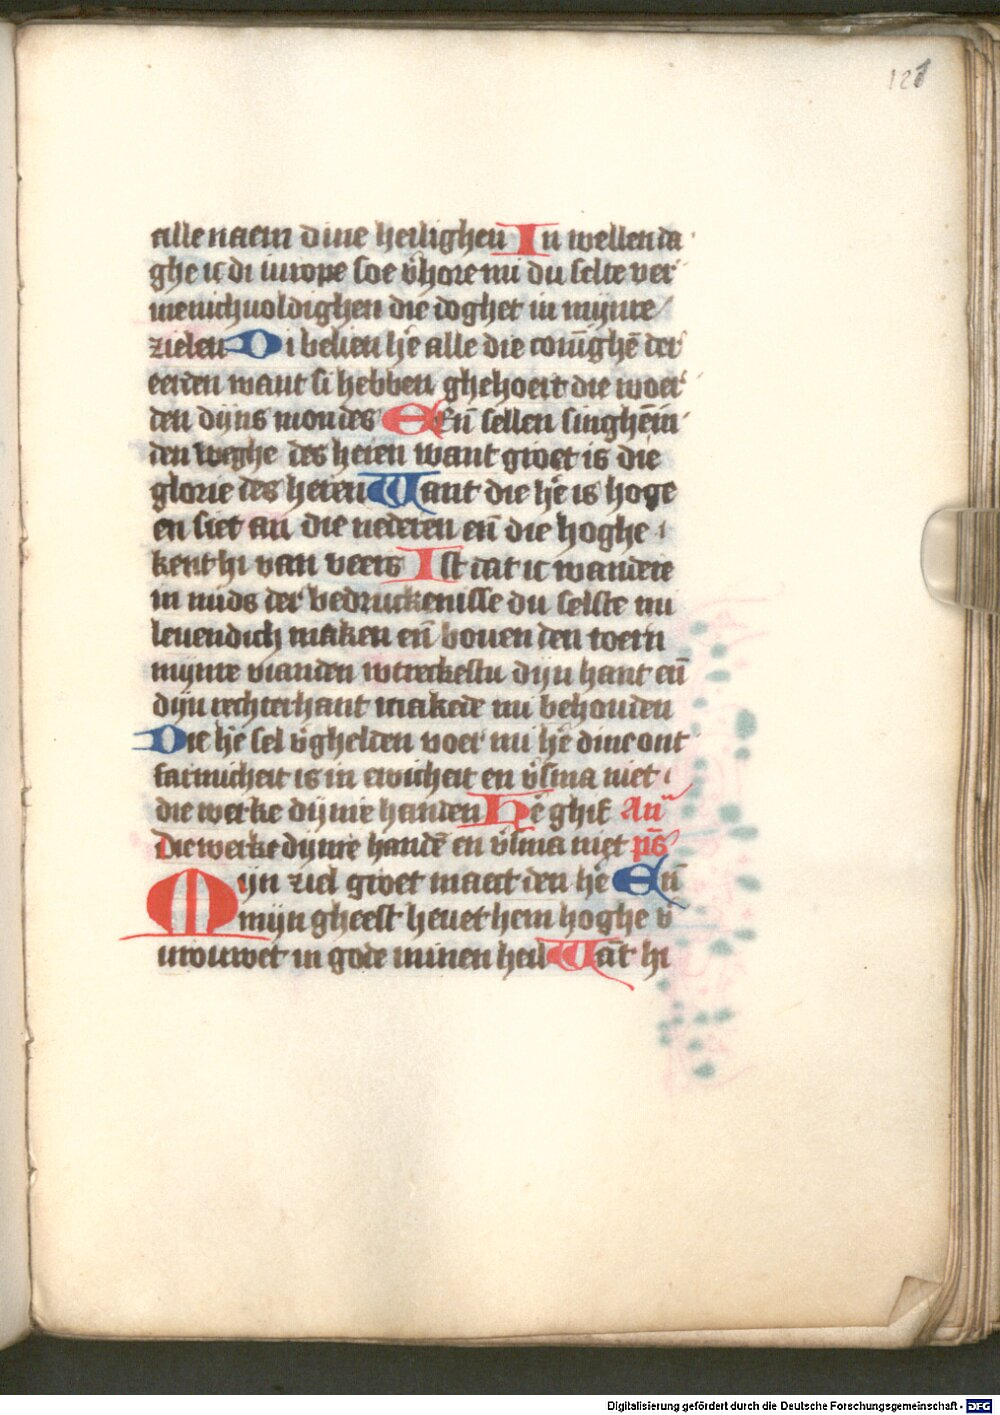 121
alle naem dine heilighen In wellen da
ghe ic di inrope soe v̄hore mi du selte ver
menichuoldighen die doghet in mynre
zielen Di belien hē alle die coninghē der
eerden want si hebben ghehoert die woer
den dijns mondes Eñ sellen singhēin
den weghe des heren want groet is die
glorie des heren Want die hē is hoge
en siet an die nederen eñ die hoghe
kent hi van veers Ist dat ic wandere
in mids der bedruckenisse du selste mi
leuendich maken eñ bouen den toern
mijnre vianden wtreckestu dijn hant eñ
dijn rechterhant makede mi behouden
Die hē sel v̄ghelden voer mi hē dine ont
farmicheit is in ewicheit en v̄sma niet
die werke dijnre handen Hē ghif An̄
Die werke dijnre handē en v̄sma niet ps̄
Mijn ziel groet maect den hē Eñ
mijn gheest heuet hem hoghe v̄
urouwet in gode minen heil Wāt hi
Digitalisierung gefördert durch die Deutsche Forschungsgemeinschaft - DFG